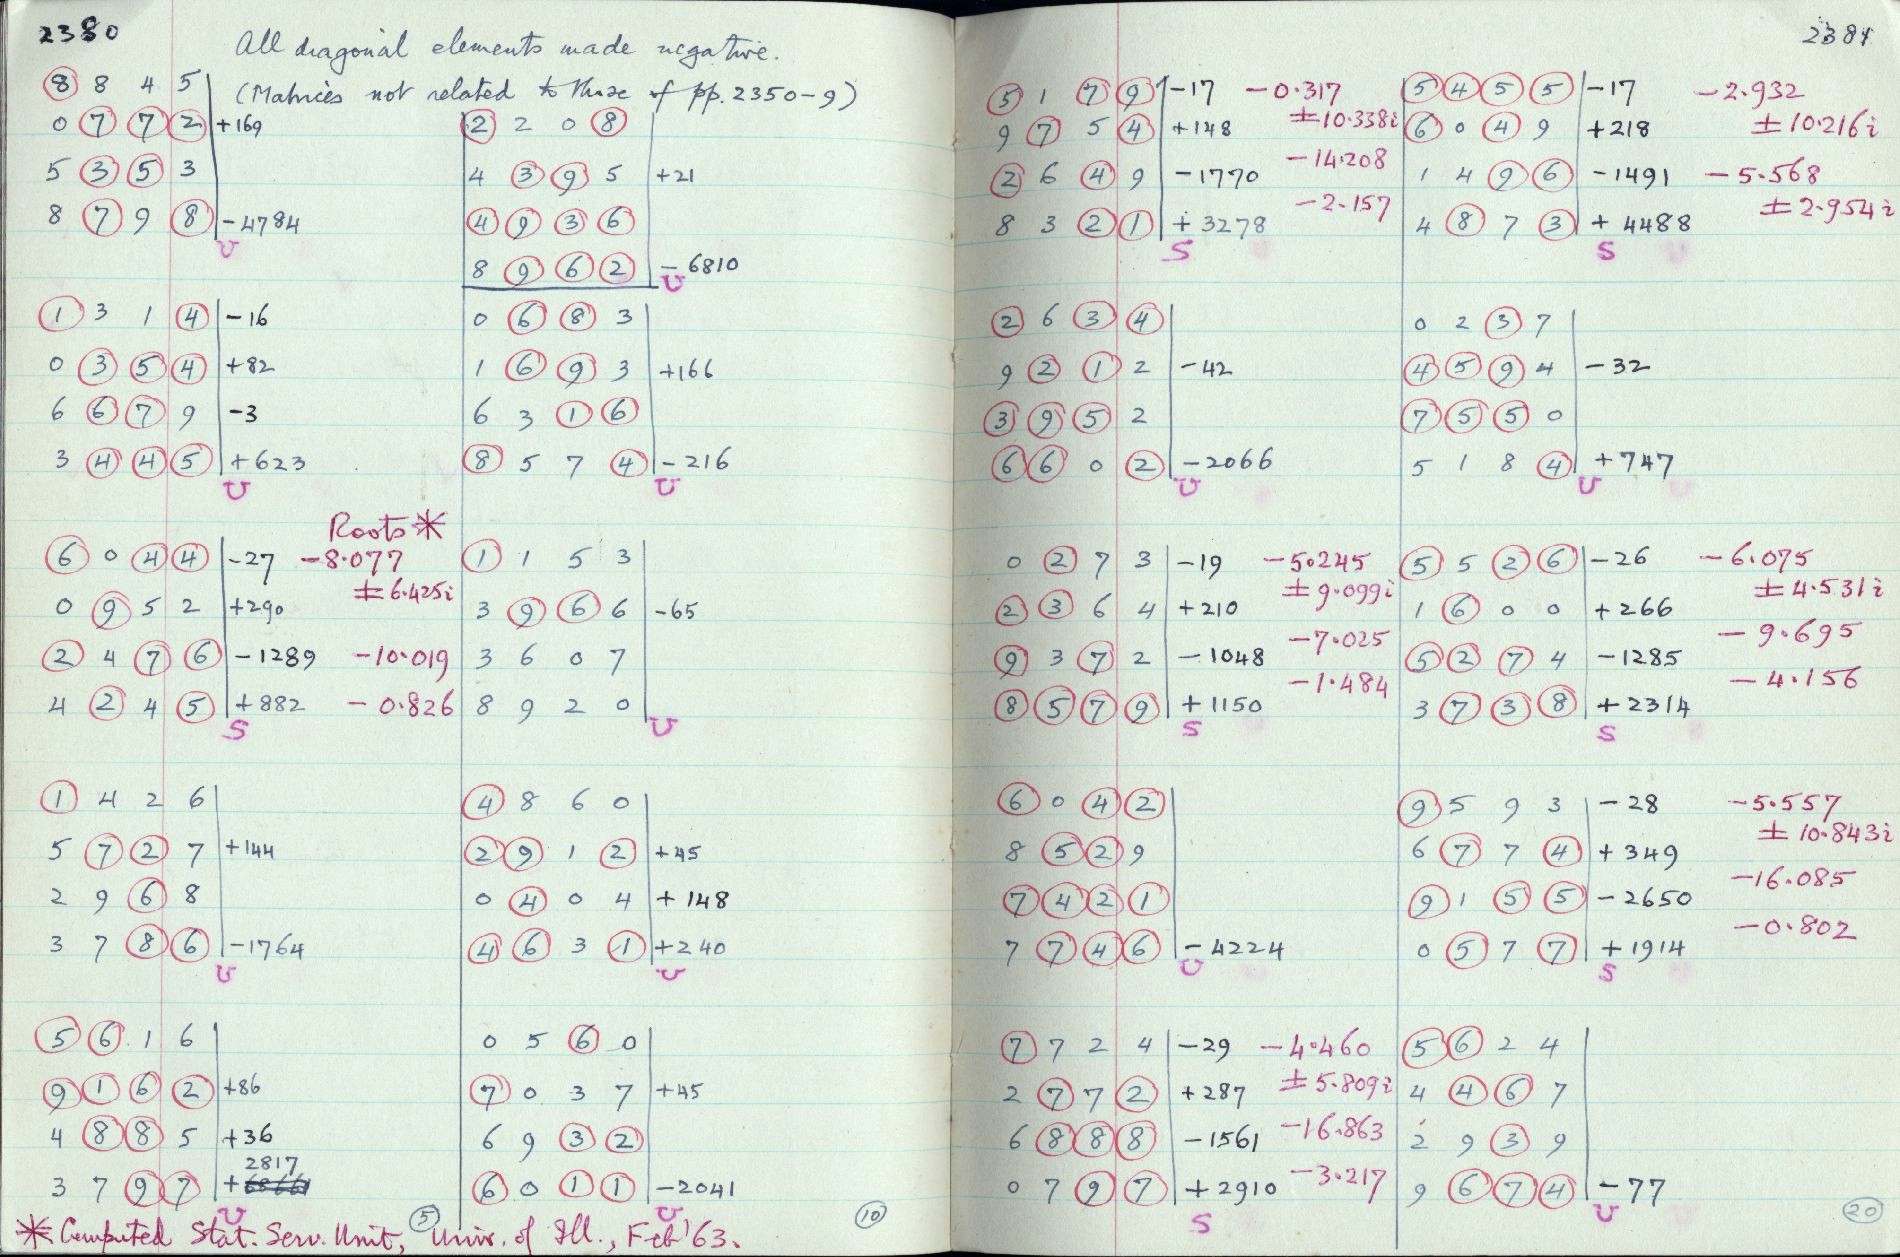 2380
All diagonal elements made negative.
(Matrices not related to those of pp. 2350-9)
8 8 4 5
0 7 7 2 +169
5 3 5 3
8 7 9 8 -4784
U
1 3 1 4 -16
0 3 5 4 +82
6 6 7 9 -3
3 4 4 5 +623
U
Roots*
6 0 4 4 -27 -8.077
± 6.425i
0 9 5 2 +290
2 4 7 6 -1289 -10.019
4 2 4 5 +882 -0.826
S
1 4 2 6
5 7 2 7 +144
2 9 6 8
3 7 8 6 -1764
U
5 6 1 6
9 1 6 2 +86
4 8 8 5 +36
2817
3 7 9 7 +
U
2 2 0 8
4 3 9 5 +21
4 9 3 6
8 9 6 2 -6810
U
0 6 8 3
1 6 9 3 +166
6 3 1 6
8 5 7 4 -216
U
1 1 5 3
3 9 6 6 -65
3 6 0 7
8 9 2 0
U
4 8 6 0
2 9 1 2 +45
0 4 0 4 +148
4 6 3 1 +240
U
0 5 6 0
7 0 3 7 +45
6 9 3 2
6 0 1 1 -2041
U
5
10
* Computed Stat. Serv. Unit, Univ. of Ill., Feb '63.
2381
5 1 7 9 -17 -0.317
± 10.338i
9 7 5 4 +148
-14.208
2 6 4 9 -1770
-2.157
8 3 2 1 +3278
S
2 6 3 4
9 2 1 2 -42
3 9 5 2
6 6 0 2 -2066
U
0 2 7 3 -19 -5.245
± 9.099i
2 3 6 4 +210
-7.025
9 3 7 2 -1048
-1.484
8 5 7 9 +1150
S
6 0 4 2
8 5 2 9
7 4 2 1
7 7 4 6 -4224
U
7 7 2 4 -29 -4.460
± 5.809i
2 7 7 2 +287
6 8 8 8 -1561 -16.863
0 7 9 7 +2910 -3.217
S
5 4 5 5 -17 -2.932
6 0 4 9 +218 ± 10.216i
1 4 9 6 -1491 -5.568
± 2.954i
4 8 7 3 +4488
S
0 2 3 7
4 5 9 4 -32
7 5 5 0
5 1 8 4 +747
U
5 5 2 6 -26 -6.075
± 4.531i
1 6 0 0 +266
-9.695
5 2 7 4 -1285
-4.156
3 7 3 8 +2314
S
9 5 9 3 -28 -5.557
± 10.843i
6 7 7 4 +349
-16.085
9 1 5 5 -2650
-0.802
0 5 7 7 +1914
S
5 6 2 4
4 4 6 7
2 9 3 9
9 6 7 4 -77
U
20